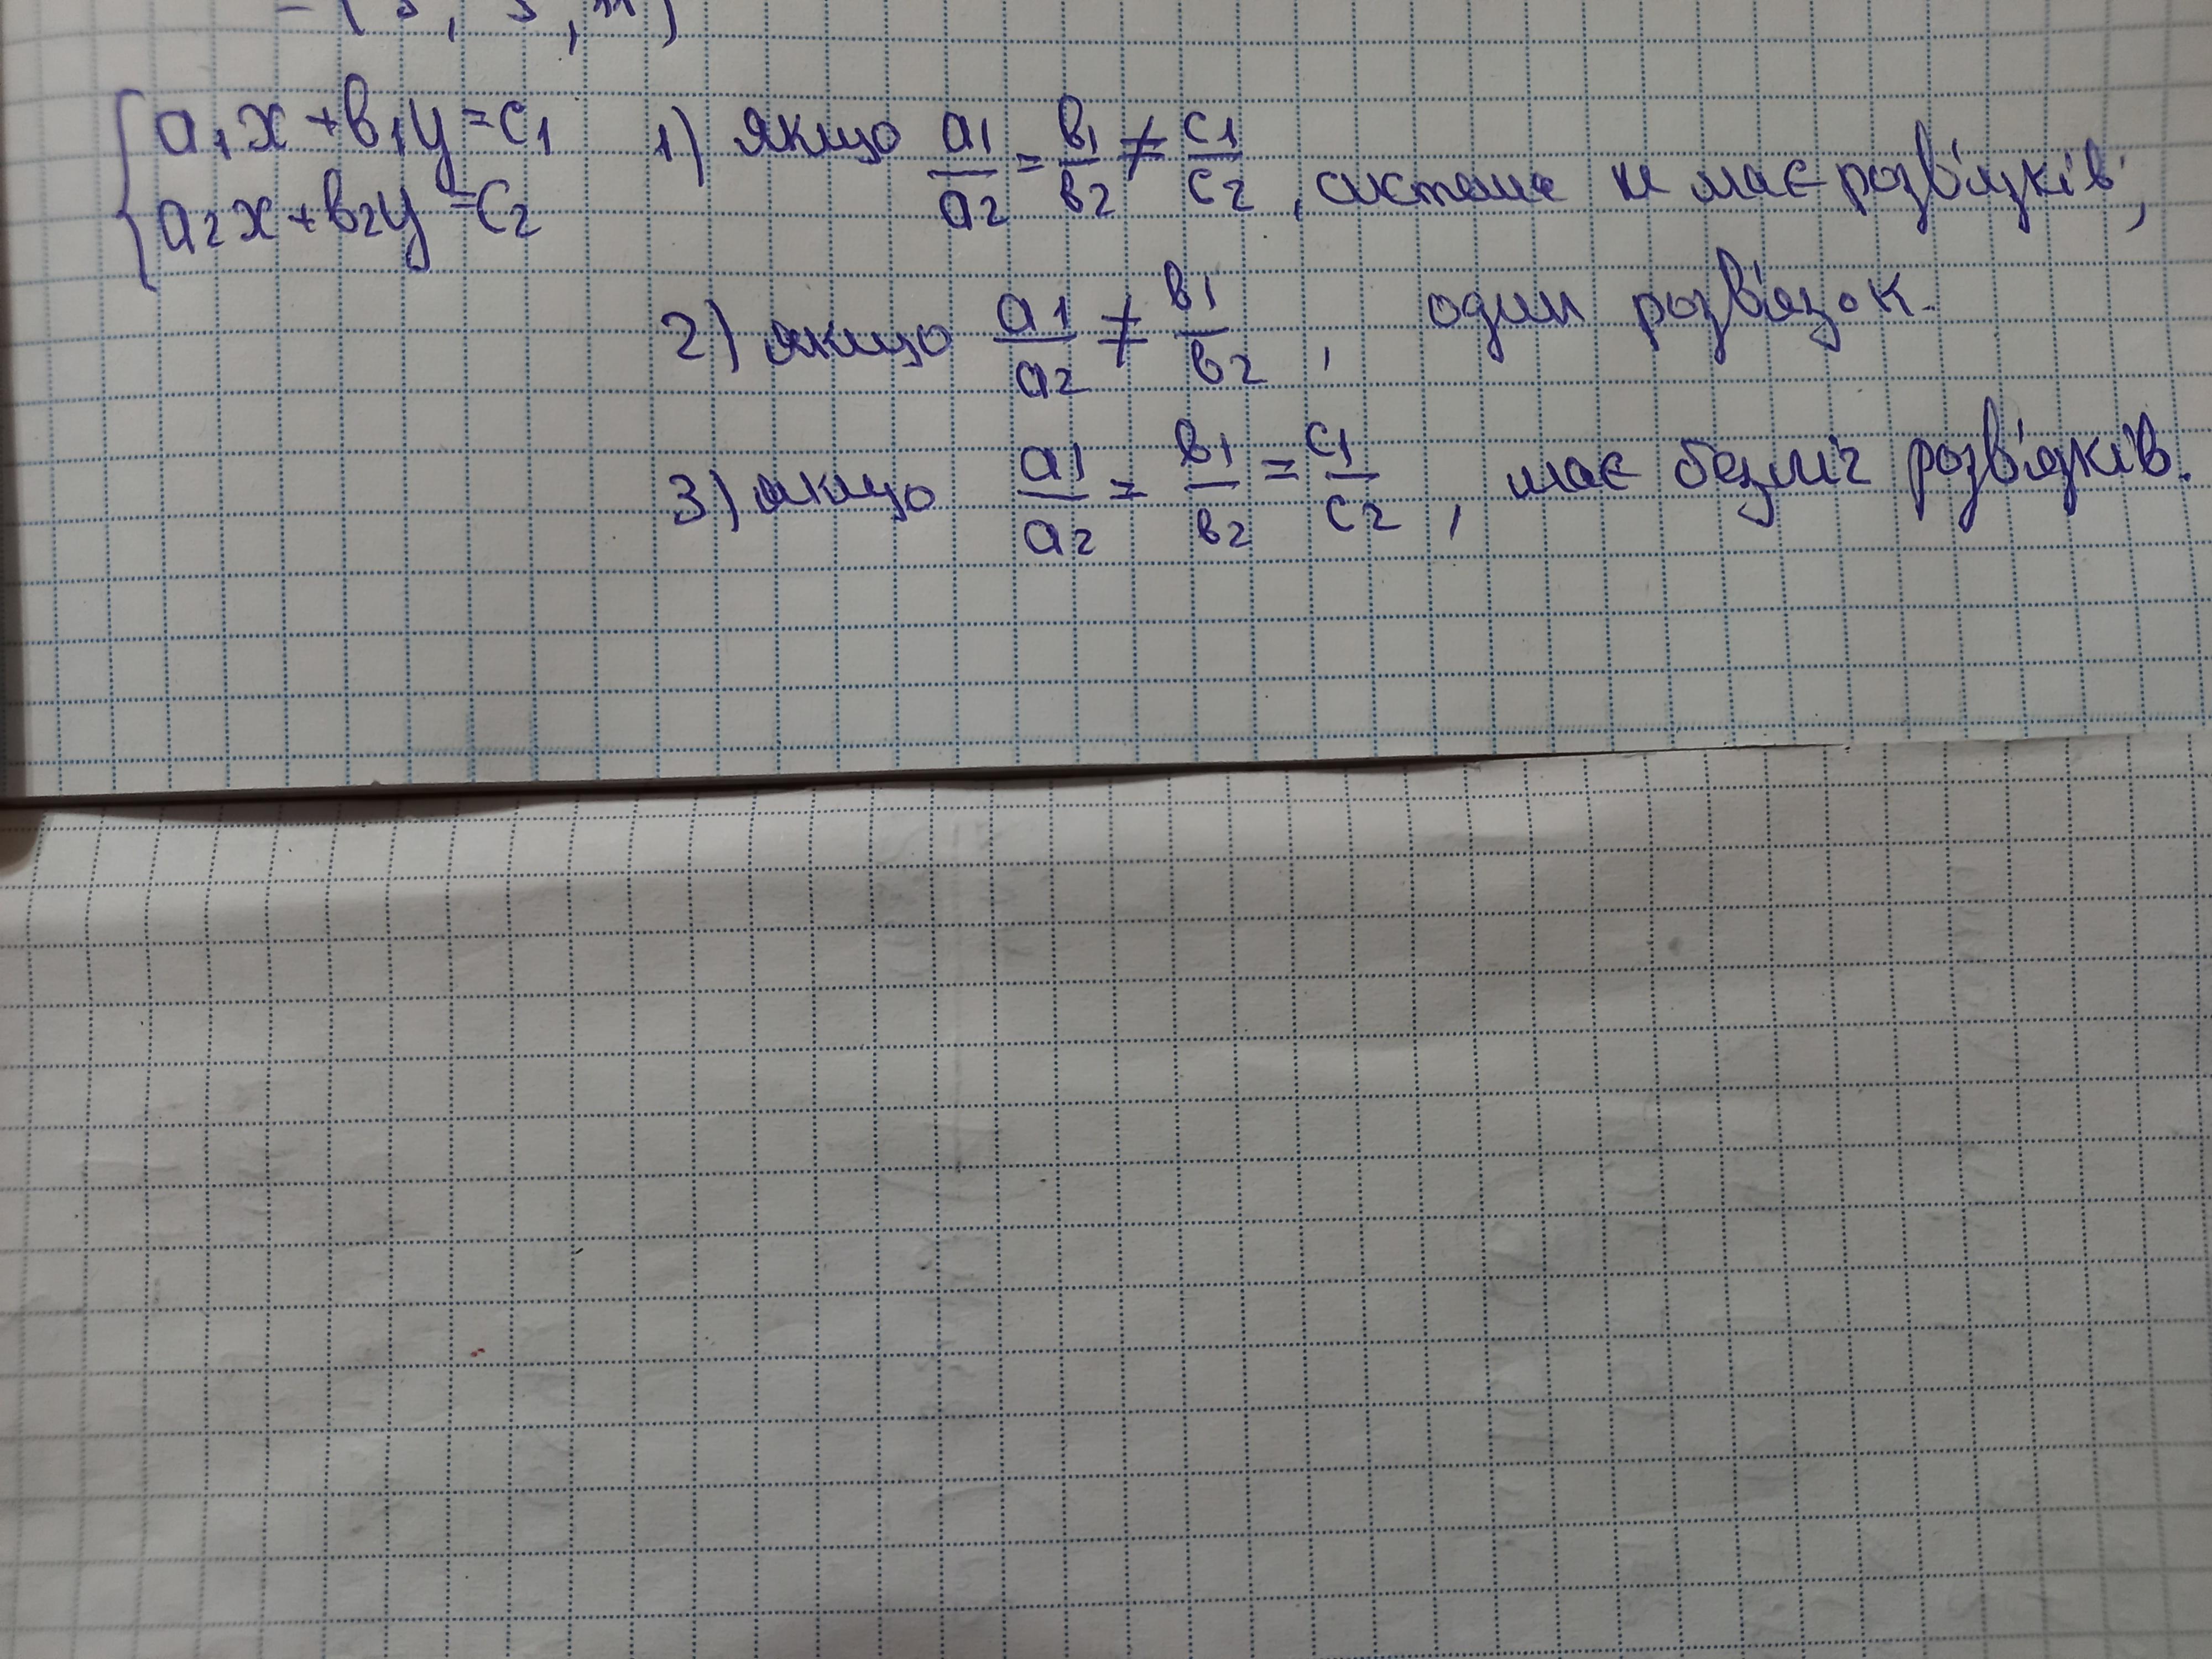 {a₁x + b₁y = c₁
a₂x + b₂y = c₂
1) Якщо a₁/a₂ = b₁/b₂ ≠ c₁/c₂, система не має розв'язків;
2) якщо a₁/a₂ ≠ b₁/b₂, один розв'язок.
3) якщо a₁/a₂ = b₁/b₂ = c₁/c₂, має безліч розв'язків.